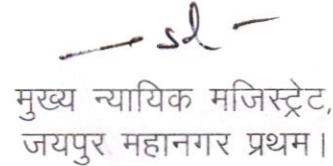 — sd —
मुख्य न्यायिक मजिस्ट्रेट,
जयपुर महानगर प्रथम।